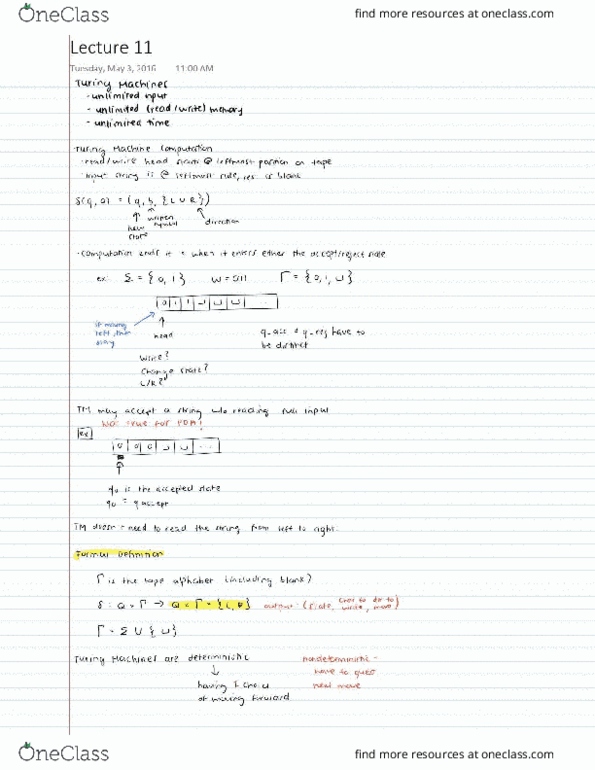 OneClass
find more resources at oneclass.com
Lecture 11
Tuesday, May 3, 2016 11:00 AM
Turing Machines
- unlimited input
- unlimited (read/write) memory
- unlimited time
Turing Machine Computation
- read/write head starts @ leftmost position on tape
- input string is @ leftmost side, rest is blank
δ(q, a) = (q, b, {L ∪ R})
new state
written symbol
direction
- computation ends if when it enters either the accept/reject state
ex: Σ = {0, 1} w = 011 Γ = {0, 1, ⊔}
0 1 1 ⊔ ⊔ ⊔ ...
if moving left, then stay
head
q-acc & q-rej have to be distinct
Write?
Change state?
L/R?
TM may accept a string w/o reading full input
Not true for PDA!
ex
0 0 0 ⊔ ⊔ ...
q0 is the accepted state
q0 = q accept
TM doesn't need to read the string from left to right.
Formal Definition
Γ is the tape alphabet (including blank)
δ: Q × Γ → Q × Γ × {L, R} output: (state, write, move)
Γ = Σ ∪ {⊔}
Turing Machines are deterministic
having 1 choice of moving forward
nondeterministic -
have to guess
next move
OneClass
find more resources at oneclass.com